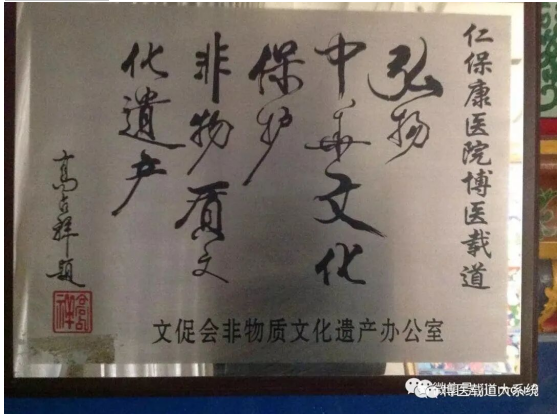 仁保康医院博医载道
弘扬
中华文化
保护
非物质文
化遗产
高占祥题
文促会非物质文化遗产办公室
博医载道大系统